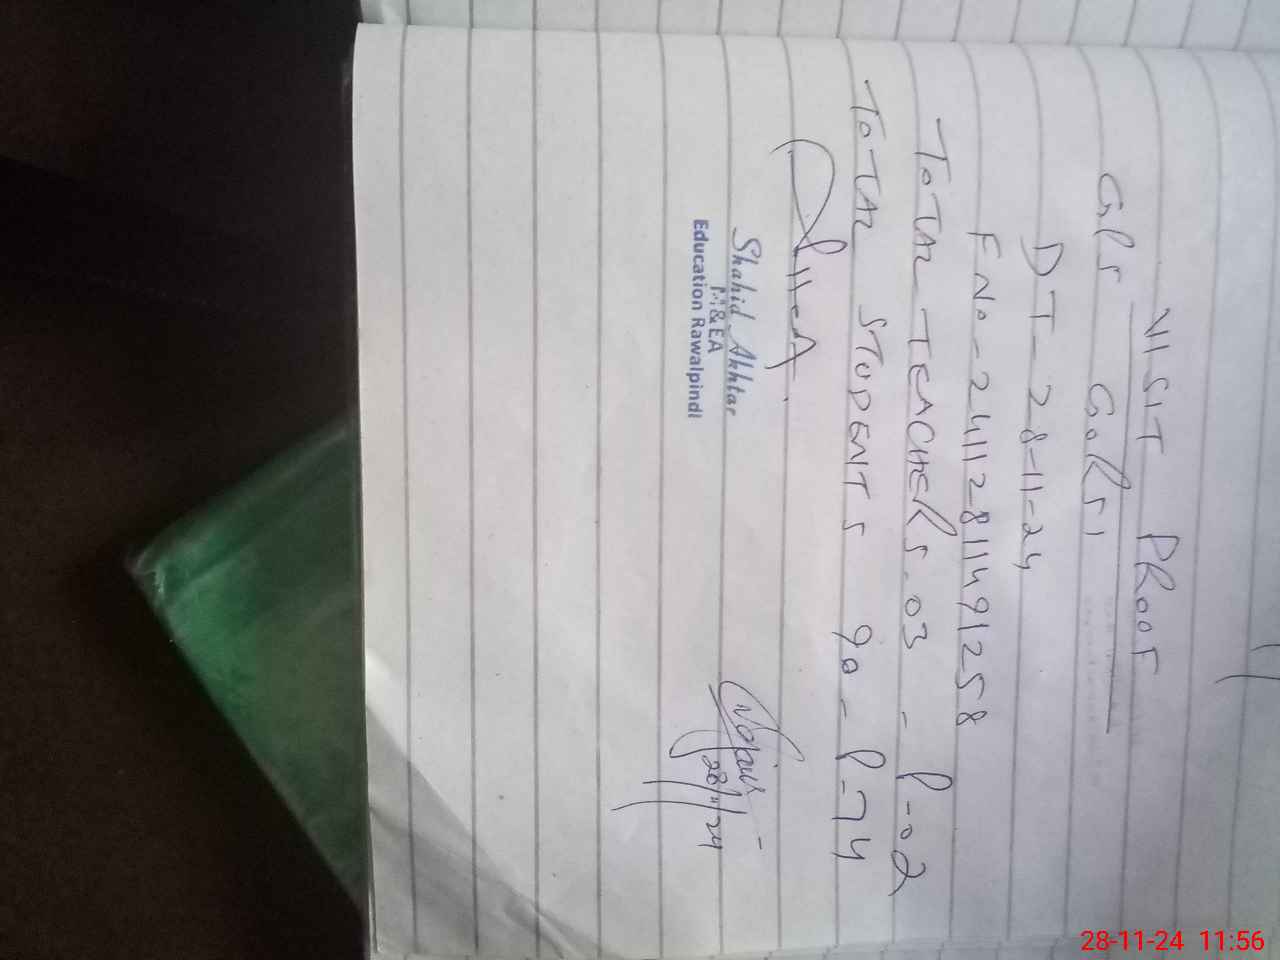 VISIT PROOF
GPS GORSI
DT-28-11-24
FNo-24112811491258
TOTAL TEACHERS-03 - P-02
TOTAL STUDENTS 90-P-74
Shahid Akhtar
M&EA
Education Rawalpindi
28/11/24
28-11-24 11:56